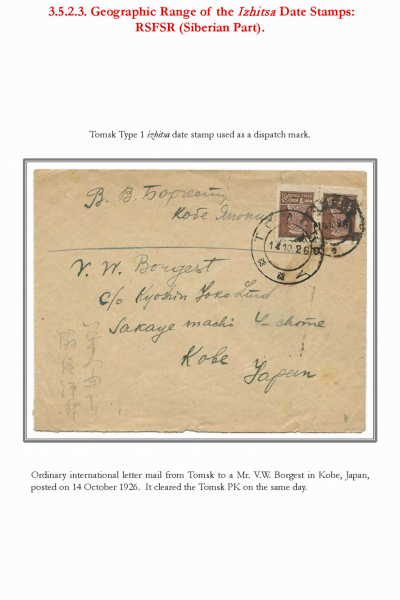 3.5.2.3. Geographic Range of the Izhitsa Date Stamps:
RSFSR (Siberian Part).
Tomsk Type 1 izhitsa date stamp used as a dispatch mark.
В. В. Боргесту
Кобе Япония
14.10.26
V. W. Borgest
c/o Kyoshin Yoko Ltd
Sakaye machi 4-chome
Kobe
Japan
Ordinary international letter mail from Tomsk to a Mr. V.W. Borgest in Kobe, Japan,
posted on 14 October 1926. It cleared the Tomsk PK on the same day.